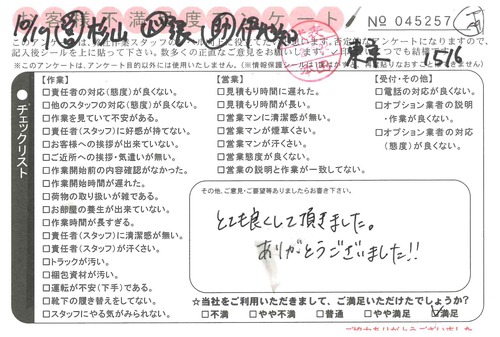 お客様不満足度アンケート
No 045257
10/19
杉山
東京
15/6
※このアンケートは、アンケート目的以外には使用いたしません。
チェックリスト
【作業】
□責任者の対応(態度)が良くない。
□他のスタッフの対応(態度)が良くない。
□作業を見ていて不安がある。
□責任者(スタッフ)に好感が持てない。
□お客様への挨拶が出来ていない。
□ご近所への挨拶・気遣いが無い。
□作業開始前の内容確認がなかった。
□作業開始時間が遅れた。
□荷物の取り扱いが雑である。
□お部屋の養生が出来ていない。
□作業時間が長すぎる。
□責任者(スタッフ)に清潔感が無い。
□責任者(スタッフ)が汗くさい。
□トラックが汚い。
□梱包資材が汚い。
□運転が不安(下手)である。
□靴下の履き替えをしてない。
□スタッフにやる気がみられない。
【営業】
□見積もり時間に遅れた。
□見積もり時間が長い。
□営業マンに清潔感が無い。
□営業マンが煙草くさい。
□営業マンが汗くさい。
□営業態度が良くない。
□営業の説明と作業が一致してない。
【受付・その他】
□電話の対応が良くない。
□オプション業者の説明
・作業が良くない。
□オプション業者の対応
(態度)が良くない。
その他、ご意見・ご要望等ありましたらお書き下さい。
とても良くして頂きました。
ありがとうございました!!
☆当社をご利用いただきまして、ご満足いただけたでしょうか?
□不満 □やや不満 □普通 □やや満足 ☑満足
ご協力ありがとうございました